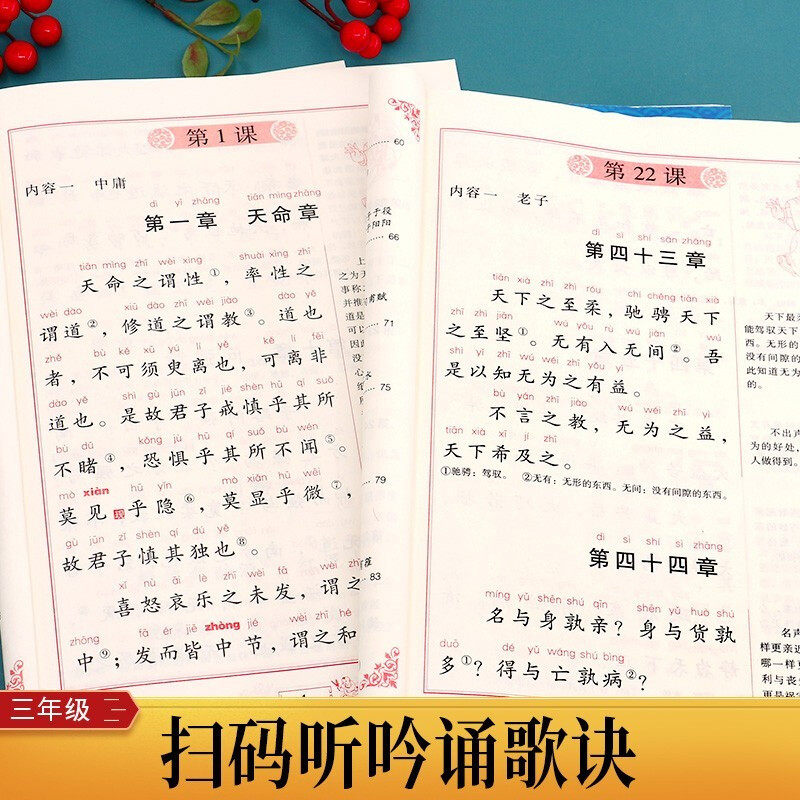 第1课
内容一 中庸
dì yī zhāng tiān mìng zhāng
第一章 天命章
tiān mìng zhī wèi xìng shuài xìng zhī
天命之谓性①，率性之
wèi dào xiū dào zhī wèi jiào dào yě
谓道②，修道之谓教③。道也
zhě bù kě xū yú lí yě kě lí fēi
者，不可须臾离也，可离非
dào yě shì gù jūn zǐ jiè shèn hū qí suǒ
道也。是故君子戒慎乎其所
bù dǔ kǒng jù hū qí suǒ bù wén
不睹④，恐惧乎其所不闻⑤。
mò xiàn hū yǐn mò xiǎn hū wēi
莫见现乎隐⑥，莫显乎微⑦，
gù jūn zǐ shèn qí dú yě
故君子慎其独也⑧。
xǐ nù āi lè zhī wèi fā wèi zhī
喜怒哀乐之未发，谓之
zhōng fā ér jiē zhòng jié wèi zhī hé
中⑨；发而皆中节，谓之和
60
66
71
75
79
83
第22课
内容一 老子
dì sì shí sān zhāng
第四十三章
tiān xià zhī zhì róu chí chěng tiān xià
天下之至柔，驰骋天下
zhī zhì jiān wú yǒu rù wú jiàn wú
之至坚①。无有入无间②。吾
shì yǐ zhī wú wéi zhī yǒu yì
是以知无为之有益。
bù yán zhī jiào wú wéi zhī yì
不言之教，无为之益，
tiān xià xī jí zhī
天下希及之。
①驰骋：驾驭。 ②无有：无形的东西。无间：没有间隙的东西。
dì sì shí sì zhāng
第四十四章
míng yǔ shēn shú qīn shēn yǔ huò shú
名与身孰亲？身与货孰
duō dé yǔ wáng shú bìng
多①？得与亡孰病②？
天下最
能驾驭天下
西。无形的
没有间隙的
此知道无为
的。
不出声
为的好处，
人做得到。
名声
样更亲近
哪一样更
利与丧
更是祸
三年级
扫码听吟诵歌诀